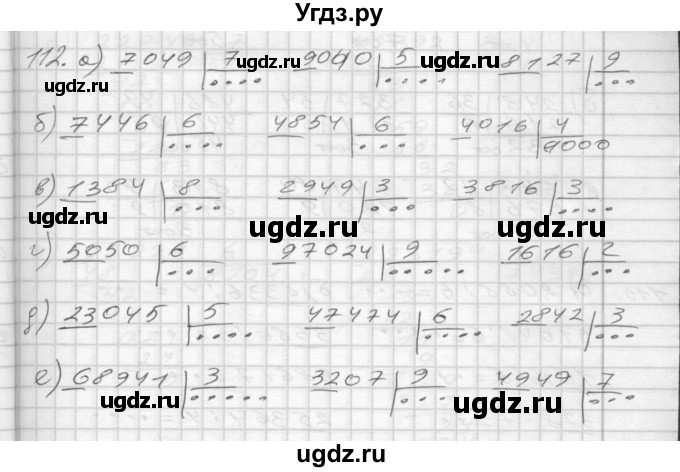 Угдз.ру
112. а) 7049 | 7 .... 9040 | 5 .... 8127 | 9 ...
ugdz.ru ugdz.ru ugdz.ru
б) 7446 | 6 .... 4854 | 6 ... 4016 | 4 0000
в) 1384 | 8 ... 2949 | 3 ... 3816 | 3 ....
ugdz.ru ugdz.ru ugdz.ru
г) 5050 | 6 ... 97024 | 9 ..... 1616 | 2 ...
ugdz.ru
д) 23045 | 5 .... 47474 | 6 .... 2842 | 3 ...
ugdz.ru ugdz.ru ugdz.ru
е) 68941 | 3 ..... 3207 | 9 ... 4949 | 7 ...
ugdz.ru ugdz.ru ugdz.ru
Угдз.ру